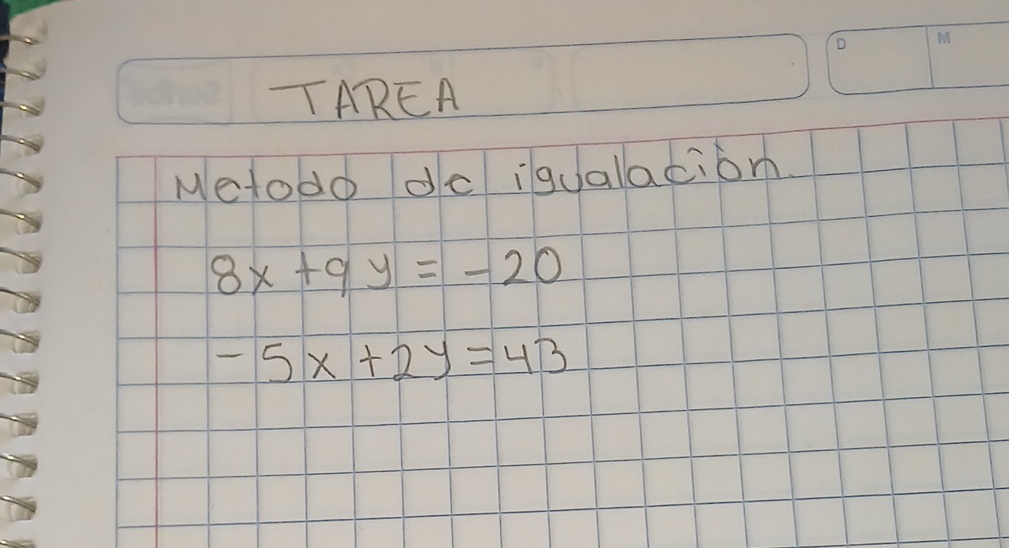 D
M
TAREA
Metodo de igualación.
8x+9y=-20
-5x+2y=43